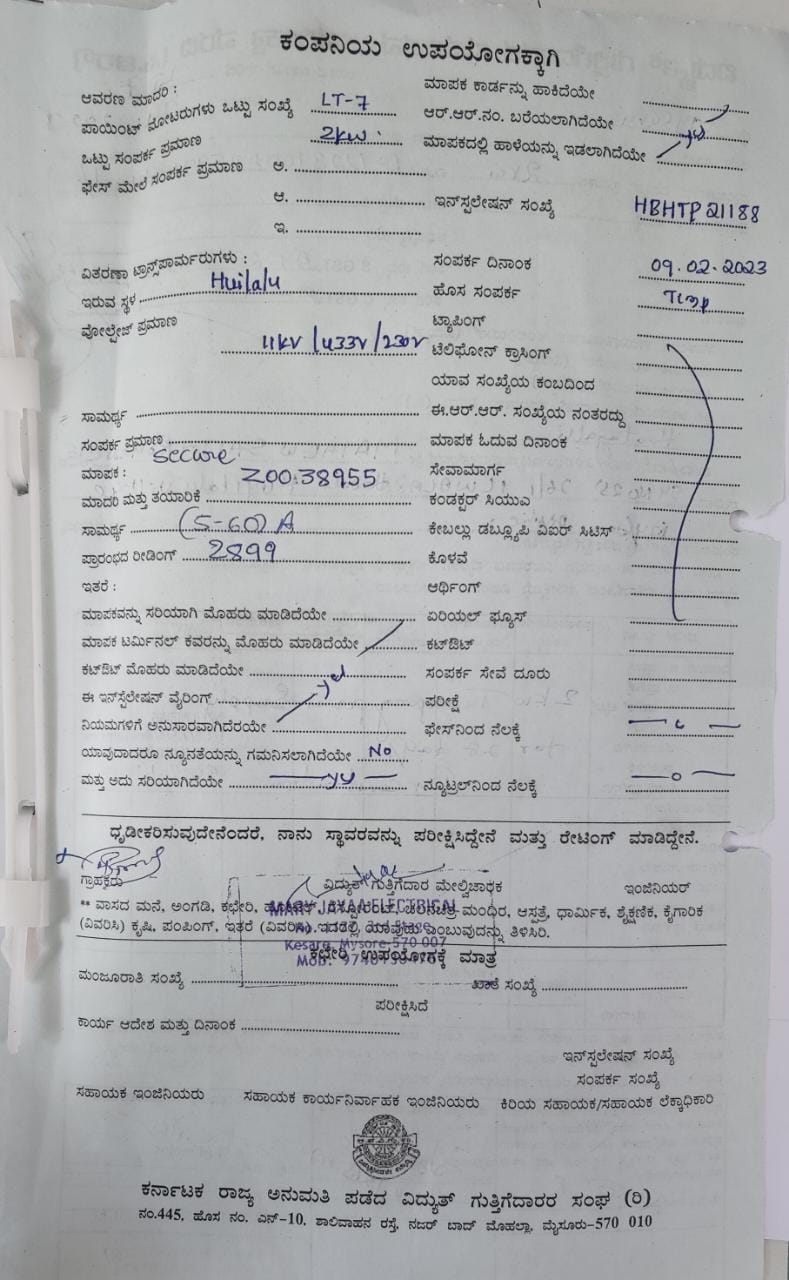 ಕಂಪನಿಯ ಉಪಯೋಗಕ್ಕಾಗಿ
ಆವರಣ ಮಾದರಿ :
ಪಾಯಿಂಟ್ ಮೋಟರುಗಳು ಒಟ್ಟು ಸಂಖ್ಯೆ LT-7
ಒಟ್ಟು ಸಂಪರ್ಕ ಪ್ರಮಾಣ 2kw
ಫೇಸ್ ಮೇಲೆ ಸಂಪರ್ಕ ಪ್ರಮಾಣ ಅ.
ಆ.
ಇ.
ಮಾಪಕ ಕಾರ್ಡನ್ನು ಹಾಕಿದೆಯೇ
ಆರ್.ಆರ್.ನಂ. ಬರೆಯಲಾಗಿದೆಯೇ
ಮಾಪಕದಲ್ಲಿ ಹಾಳೆಯನ್ನು ಇಡಲಾಗಿದೆಯೇ
ಇನ್‌ಸ್ಪಲೇಷನ್ ಸಂಖ್ಯೆ HBHTP 21188
ವಿತರಣಾ ಟ್ರಾನ್ಸ್‌ಪಾರ್ಮರುಗಳು :
ಇರುವ ಸ್ಥಳ Huilalu
ವೋಲ್ಟೇಜ್ ಪ್ರಮಾಣ
11kv /433v /230v
ಸಾಮರ್ಥ್ಯ
ಸಂಪರ್ಕ ಪ್ರಮಾಣ
ಮಾಪಕ : secure Z0038955
ಮಾದರಿ ಮತ್ತು ತಯಾರಿಕೆ
ಸಾಮರ್ಥ್ಯ (5-60) A
ಪ್ರಾರಂಭದ ರೀಡಿಂಗ್ 2899
ಇತರೆ :
ಮಾಪಕವನ್ನು ಸರಿಯಾಗಿ ಮೊಹರು ಮಾಡಿದೆಯೇ
ಮಾಪಕ ಟರ್ಮಿನಲ್ ಕವರನ್ನು ಮೊಹರು ಮಾಡಿದೆಯೇ
ಕಟ್‌ಔಟ್ ಮೊಹರು ಮಾಡಿದೆಯೇ
ಈ ಇನ್‌ಸ್ಟಲೇಷನ್ ವೈರಿಂಗ್
ನಿಯಮಗಳಿಗೆ ಅನುಸಾರವಾಗಿದೆರಯೇ
ಯಾವುದಾದರೂ ನ್ಯೂನತೆಯನ್ನು ಗಮನಿಸಲಾಗಿದೆಯೇ No
ಮತ್ತು ಅದು ಸರಿಯಾಗಿದೆಯೇ
ಸಂಪರ್ಕ ದಿನಾಂಕ 09.02.2023
ಹೊಸ ಸಂಪರ್ಕ
ಟ್ಯಾಪಿಂಗ್
ಟೆಲಿಫೋನ್ ಕ್ರಾಸಿಂಗ್
ಯಾವ ಸಂಖ್ಯೆಯ ಕಂಬದಿಂದ
ಈ.ಆರ್.ಆರ್. ಸಂಖ್ಯೆಯ ನಂತರದ್ದು
ಮಾಪಕ ಓದುವ ದಿನಾಂಕ
ಸೇವಾಮಾರ್ಗ
ಕಂಡಕ್ಟರ್ ಸಿಯುವಿ
ಕೇಬಲ್ಲು ಡಬ್ಲ್ಯೂಪಿ ವಿಐರ್ ಸಿಟಿಸ್
ಕೊಳವೆ
ಆರ್ಥಿಂಗ್
ಏರಿಯಲ್ ಫ್ಯೂಸ್
ಕಟ್‌ಔಟ್
ಸಂಪರ್ಕ ಸೇವೆ ದೂರು
ಪರೀಕ್ಷೆ
ಫೇಸ್‌ನಿಂದ ನೆಲಕ್ಕೆ
ನ್ಯೂಟ್ರಲ್‌ನಿಂದ ನೆಲಕ್ಕೆ
ಧೃಡೀಕರಿಸುವುದೇನೆಂದರೆ, ನಾನು ಸ್ಥಾವರವನ್ನು ಪರೀಕ್ಷಿಸಿದ್ದೇನೆ ಮತ್ತು ರೇಟಿಂಗ್ ಮಾಡಿದ್ದೇನೆ.
ಗ್ರಾಹಕರು ವಿದ್ಯುತ್ ಗುತ್ತಿಗೆದಾರ ಮೇಲ್ವಿಚಾರಕ ಇಂಜಿನಿಯರ್
** ವಾಸದ ಮನೆ, ಅಂಗಡಿ, ಕಛೇರಿ, ಮಂಧಿರ, ಆಸ್ಪತ್ರೆ, ಧಾರ್ಮಿಕ, ಶೈಕ್ಷಣಿಕ, ಕೈಗಾರಿಕ
(ವಿವರಿಸಿ) ಕೃಷಿ, ಪಂಪಿಂಗ್, ಇತರೆ (ವಿವರಿಸಿ) ಇದರಲ್ಲಿ ಯಾವುದು ಎಂಬುವುದನ್ನು ತಿಳಿಸಿರಿ.
ELECTRICAL
Kesare, Mysore-570 007
ಕಛೇರಿ ಉಪಯೋಗಕ್ಕೆ ಮಾತ್ರ
ಮಂಜೂರಾತಿ ಸಂಖ್ಯೆ ಖಾತೆ ಸಂಖ್ಯೆ
ಪರೀಕ್ಷಿಸಿದೆ
ಕಾರ್ಯ ಆದೇಶ ಮತ್ತು ದಿನಾಂಕ
ಇನ್‌ಸ್ಪಲೇಷನ್ ಸಂಖ್ಯೆ
ಸಂಪರ್ಕ ಸಂಖ್ಯೆ
ಸಹಾಯಕ ಇಂಜಿನಿಯರು ಸಹಾಯಕ ಕಾರ್ಯನಿರ್ವಾಹಕ ಇಂಜಿನಿಯರು ಕಿರಿಯ ಸಹಾಯಕ/ಸಹಾಯಕ ಲೆಕ್ಕಾಧಿಕಾರಿ
ಕರ್ನಾಟಕ ರಾಜ್ಯ ಅನುಮತಿ ಪಡೆದ ವಿದ್ಯುತ್ ಗುತ್ತಿಗೆದಾರರ ಸಂಘ (ರಿ)
ನಂ.445, ಹೊಸ ನಂ. ಎನ್-10, ಶಾಲಿವಾಹನ ರಸ್ತೆ, ನಜರ್ ಬಾದ್ ಮೊಹಲ್ಲಾ, ಮೈಸೂರು-570 010